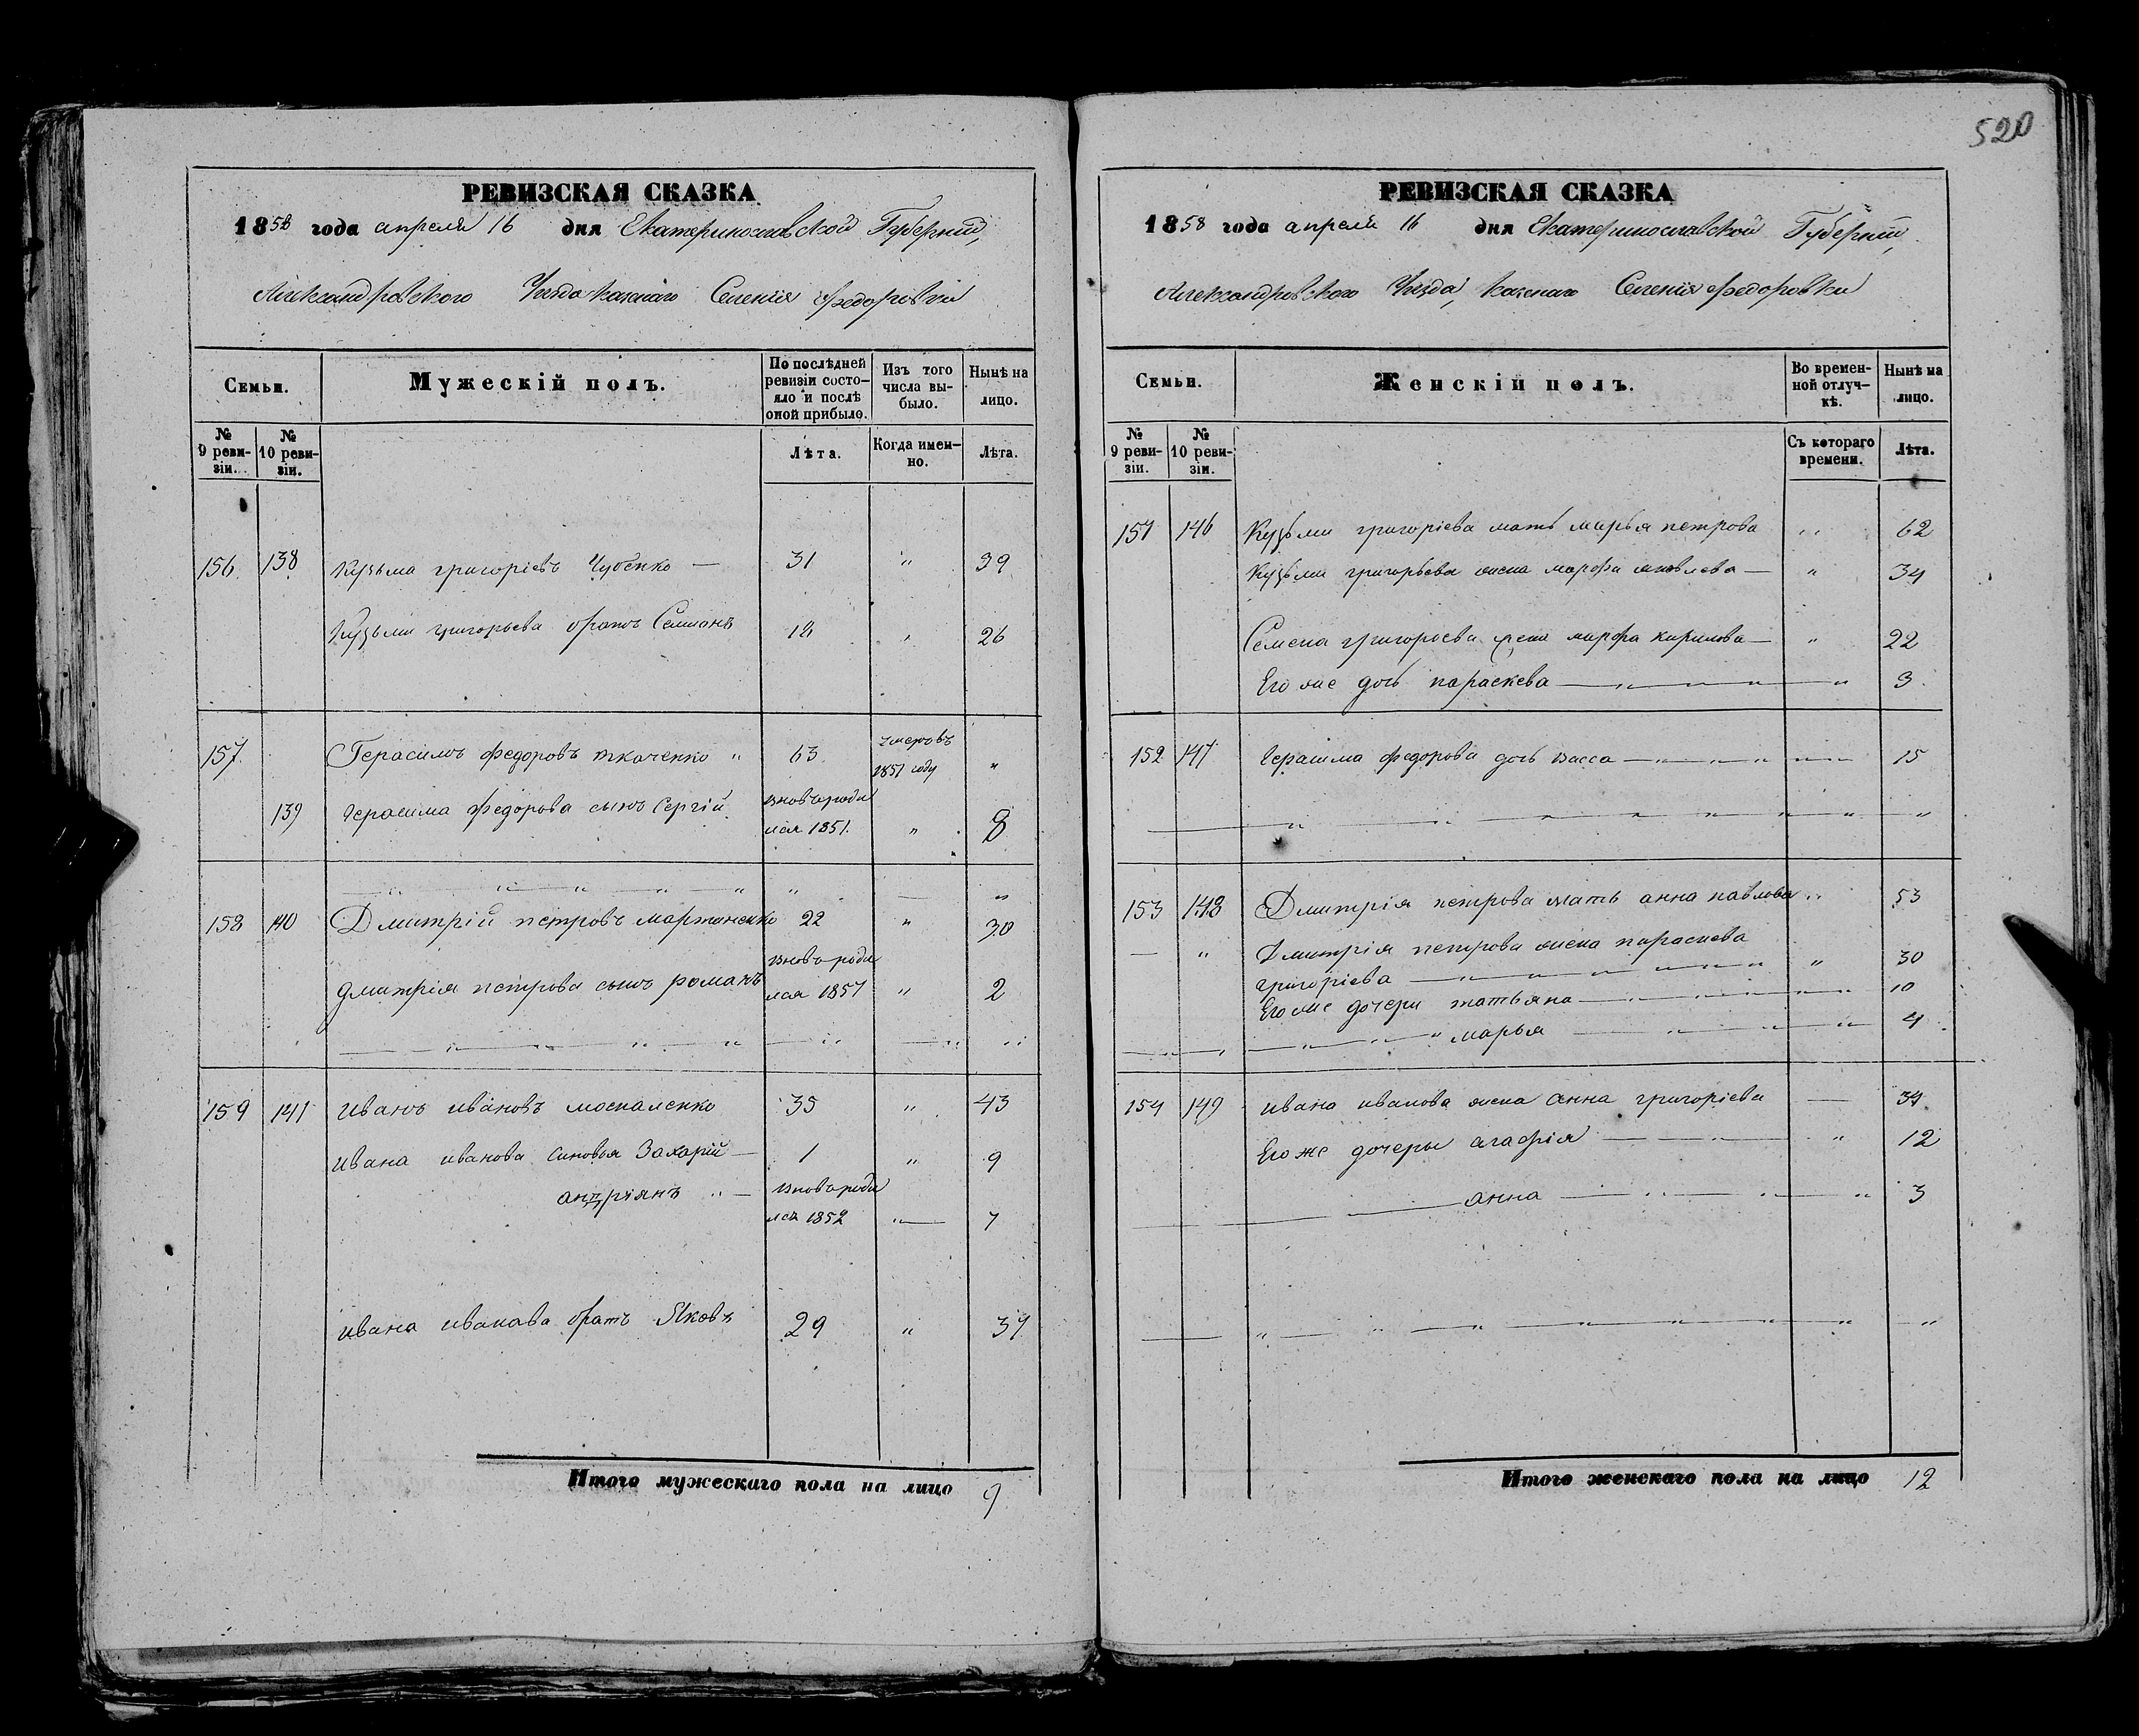 520
РЕВИЗСКАЯ СКАЗКА
1858 года апреля 16 дня Екатеринославской Губерніи,
Александровского Уезда казенаго Селенія Федоровки
Семьи. Мужескій полъ. По послѣдней ревизіи состояло и послѣ оной прибыло. Изъ того числа выбыло. Нынѣ на лицо.
№ 9 ревизіи. № 10 ревизіи. Лѣта. Когда именно. Лѣта.
156 138 Кузьма григоріевъ Чубенко — 31 " 39
Кузьми григорьева братъ Семианъ 18 " 26
157 Герасимъ федоровъ ткаченко " 63 умеръ въ 1851 году "
139 Герасима федорова сынъ Сергій вновь роди
лся 1851. " 8
158 140 Дмитрій петровъ мартоненко 22 " 30
вновь роди
дмитрія петрова сынъ романъ лся 1857 " 2
159 141 иванъ ивановъ москаленко 35 " 43
ивана иванова синовья Захарій — 1 " 9
андріянъ " — вновь роди
лся 1852 " — 7
ивана иванава братъ Яковъ 29 " 37
Итого мужескаго пола на лицо 9
РЕВИЗСКАЯ СКАЗКА
1858 года апреля 16 дня Екатеринославской Губерніи,
Александровского Уезда, казенаго Селенія Федоровки
Семьи. Женскій полъ. Во временной отлучкѣ. Нынѣ на лицо.
№ 9 ревизіи. № 10 ревизіи. Съ котораго времени. Лѣта.
151 146 Кузьми григоріева мать марья петрова " 62
Кузьми григорьева жена марфа яковлева — " 34
Семена григорьева жена марфа кирилова — " 22
Его же дочь параскева — " 3
152 147 Герасима федорова дочь васса — " 15
153 148 Дмитрія петрова мать анна павлова " 53
— " Дмитрія петрова жена параскева
григоріева — " 30
Его же дочери татьяна — " 10
" марья — " 4
154 149 ивана иванова жена анна григоріева — 34
Его же дочеры агафія — " 12
анна — " 3
Итого женскаго пола на лицо 12